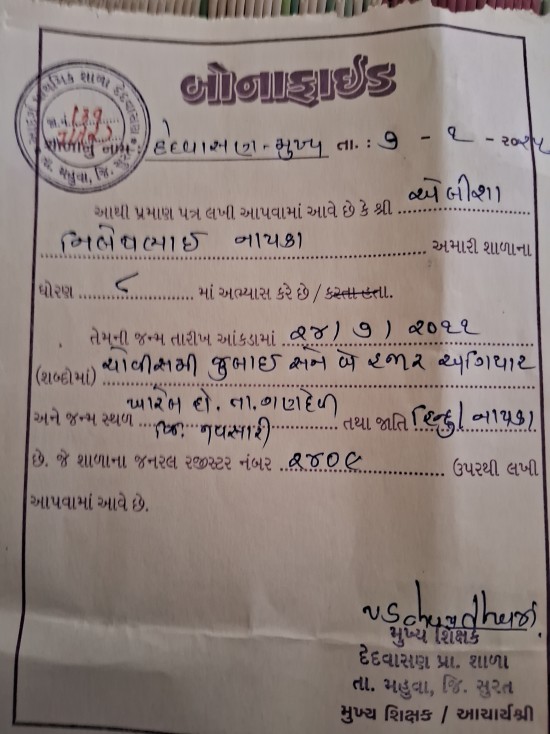 બોનાફાઈડ
પ્રાથમિક શાળા દેદવાસણ
જા.નં. 139
તા. મહુવા, જિ. સુરત
શાળાનું નામ : દેદવાસણ - મુખ્ય તા. : ૭ - ૧ - ૨૦૨૫
આથી પ્રમાણ પત્ર લખી આપવામાં આવે છે કે શ્રી એલીશા
નિલેષભાઈ નાયકા અમારી શાળાના
ધોરણ ૮ માં અભ્યાસ કરે છે / કરતા હતા.
તેમની જન્મ તારીખ આંકડામાં ૨૪ / ૭ / ૨૦૧૧
(શબ્દોમાં) ચોવીસમી જુલાઈ સને બે હજાર અગિયાર
અને જન્મ સ્થળ ખારેલ હો. તા. ગણદેવી જિ. નવસારી તથા જાતિ હિન્દુ નાયકા
છે. જે શાળાના જનરલ રજીસ્ટર નંબર ૨૪૦૯ ઉપરથી લખી
આપવામાં આવે છે.
મુખ્ય શિક્ષક
દેદવાસણ પ્રા. શાળા
તા. મહુવા, જિ. સુરત
મુખ્ય શિક્ષક / આચાર્યશ્રી